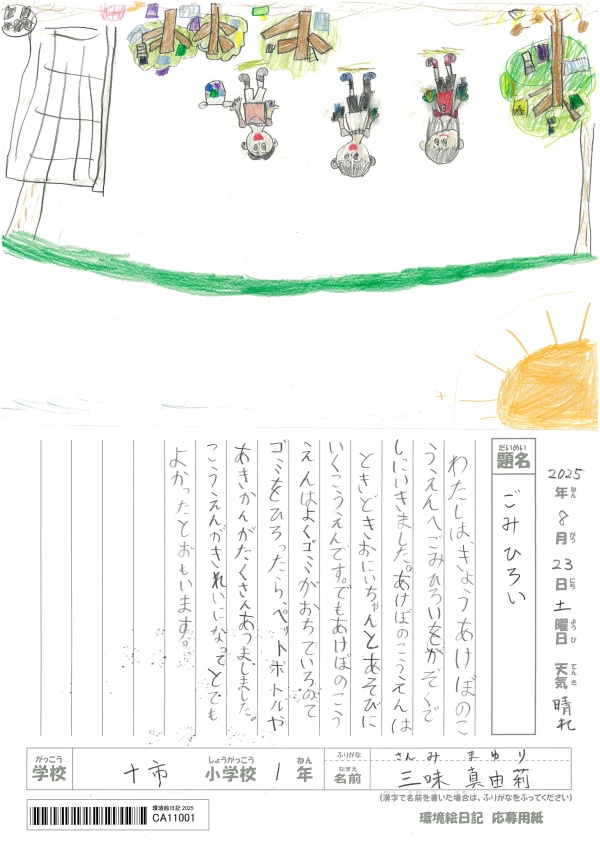 2025年ねん8月がつ23日にち土曜日ようび 天気てんき 晴れ
だいめい
題名
ごみひろい
わたしはきょうあけぼのこ
うえんへごみひろいをかぞくで
しにいきました。あけぼのこうえんは
ときどきおにいちゃんとあそびに
いくこうえんです。でもあけぼのこう
えんはよくゴミがおちているのて
ゴミをひろったら、ペットボトルや
あきかんがたくさんあつまりました。
こうえんがきれいになってとても
よかったとおもいます。
がっこう
学校
十市
しょうがっこう
小学校
1
ねん
年
ふりがな
さんみ まゆり
なまえ
名前
三味 真由莉
(漢字で名前を書いた場合は、ふりがなをふってください)
環境絵日記 2025
CA11001
環境絵日記 応募用紙